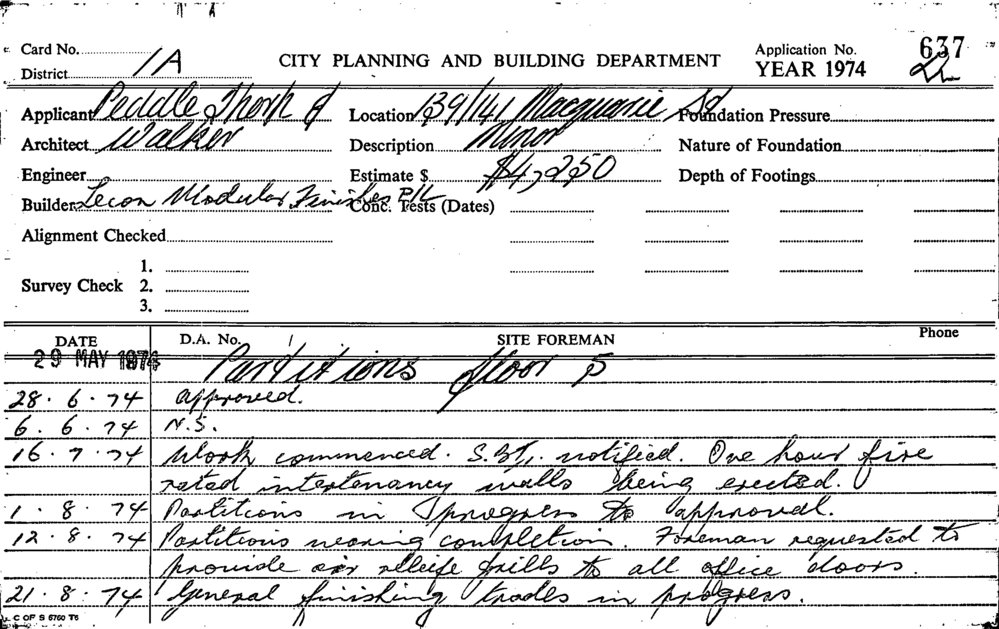 Card No. 1A CITY PLANNING AND BUILDING DEPARTMENT Application No. 637
District YEAR 1974
Applicant Peddle Thorp & Location 139/141 Macquarie St Foundation Pressure
Architect Walker Description Minor Nature of Foundation
Engineer Estimate $ $4,250 Depth of Footings
Builder Lecon Modular Finishes P/L Conc. Tests (Dates)
Alignment Checked
1.
Survey Check 2.
3.
DATE D.A. No. SITE FOREMAN Phone
29 MAY 1974 Partitions floor 5
28.6.74 approved.
6.6.74 N.S.
16.7.74 Work commenced. notified. One hour fire
rated intertenancy walls being erected.
1.8.74 Partitions in progress to approval.
12.8.74 Partitions nearing completion. Foreman requested to
provide air grills to all office doors.
21.8.74 General finishing trades in progress.
C OF S 5760 T6